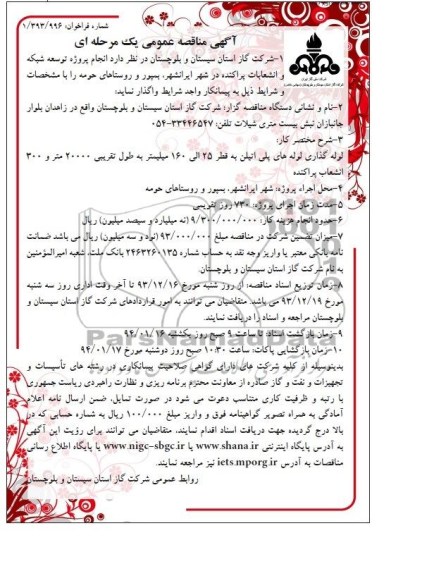 شماره فراخوان: ۱/۳۹۳/۹۹۶
آگهی مناقصه عمومی یک مرحله ای
۱-شرکت گاز استان سیستان و بلوچستان در نظر دارد انجام پروژه توسعه شبکه
و انشعابات پراکنده در شهر ایرانشهر، بمپور و روستاهای حومه را با مشخصات
و شرایط ذیل به پیمانکار واجد شرایط واگذار نماید:
۲-نام و نشانی دستگاه مناقصه گزار: شرکت گاز استان سیستان و بلوچستان واقع در زاهدان بلوار
جانبازان نبش بیست متری شیلات تلفن: ۳۳۴۴۶۵۴۷-۰۵۴
۳-شرح مختصر کار:
لوله گذاری لوله های پلی اتیلن به قطر ۲۵ الی ۱۶۰ میلیمتر به طول تقریبی ۲۰۰۰۰ متر و ۳۰۰
انشعاب پراکنده
۴-محل اجراء پروژه: شهر ایرانشهر، بمپور و روستاهای حومه
۵-مدت زمان اجرای پروژه: ۷۳۰ روز تقریبی
۶-حدود انجام هزینه کار: ۹/۳۰۰/۰۰۰/۰۰۰ (نه میلیارد و سیصد میلیون) ریال
۷-میزان تضمین شرکت در مناقصه مبلغ ۹۳/۰۰۰/۰۰۰ (نود و سه میلیون) ریال می باشد ضمانت
نامه بانکی معتبر یا واریز وجه نقد به حساب شماره ۲۴۶۳۲۶۰۱۳۵ بانک ملت، شعبه امیرالمؤمنین
به نام شرکت گاز استان سیستان و بلوچستان.
۸-زمان توزیع اسناد مناقصه: از روز شنبه مورخ ۹۳/۱۲/۱۶ تا آخر وقت اداری روز سه شنبه
مورخ ۹۳/۱۲/۱۹ می باشد. متقاضیان می توانند به امور قراردادهای شرکت گاز استان سیستان و
بلوچستان مراجعه و اسناد را دریافت نمایند.
۹-زمان بازگشت اسناد: تا ساعت ۹ صبح روز یکشنبه ۹۴/۰۱/۱۶
۱۰-زمان بازگشایی پاکات: ساعت ۱۰:۳۰ صبح روز دوشنبه مورخ ۹۴/۰۱/۱۷
بدینوسیله از کلیه شرکت های دارای گواهی صلاحیت پیمانکاری در رشته های تأسیسات و
تجهیزات و نفت و گاز صادره از معاونت محترم برنامه ریزی و نظارت راهبردی ریاست جمهوری
با رتبه و ظرفیت کاری متناسب دعوت می شود در صورت تمایل، ضمن ارسال نامه اعلام
آمادگی به همراه تصویر گواهینامه فوق و واریز مبلغ ۱۰۰/۰۰۰ ریال به شماره حسابی که در
بالا درج گردیده جهت دریافت اسناد اقدام نمایند. متقاضیان می توانند برای رؤیت این آگهی
به آدرس پایگاه اینترنتی www.shana.ir و www.nigc-sbgc.ir یا پایگاه اطلاع رسانی
مناقصات به آدرس iets.mporg.ir نیز مراجعه نمایند.
روابط عمومی شرکت گاز استان سیستان و بلوچستان
ParsNamadData